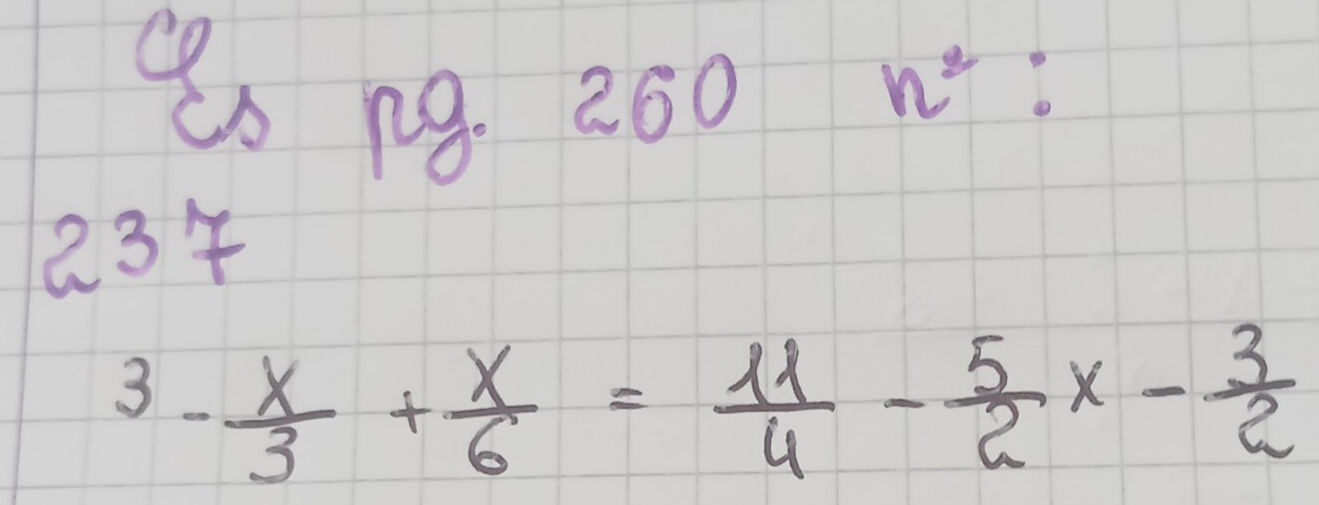 Es pg. 260 n° :
237
3 - x/3 + x/6 = 11/4 - 5/2 x - 3/2